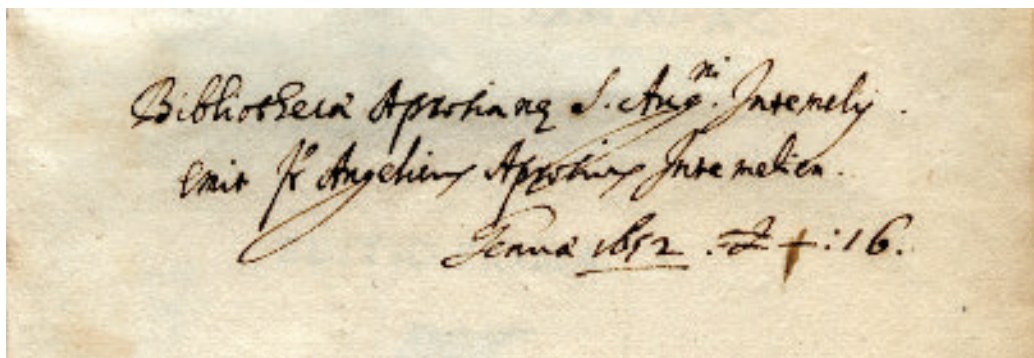 Bibliothecæ Aprosianæ S. Aug.ni Intemelij.
emit fr Angelicus Aprosius Intemelien.
Genuæ 1652 . £ — : 16.